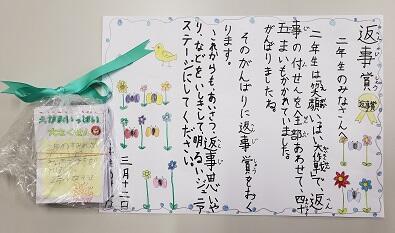 返事賞
返事賞
二年生のみなさんへ
二年生は笑顔いっぱい大作戦で、返
事の付せんを全部あわせて、四十
五まいもかかれていました。
がんばりましたね。
そのがんばりに返事賞をおく
ります。
これからも、あいさつ、返事、思いや
りなどをいしきして、明るいジュニア
ステージにしてください。
三月十二日
えがおいっぱい
大さくせん